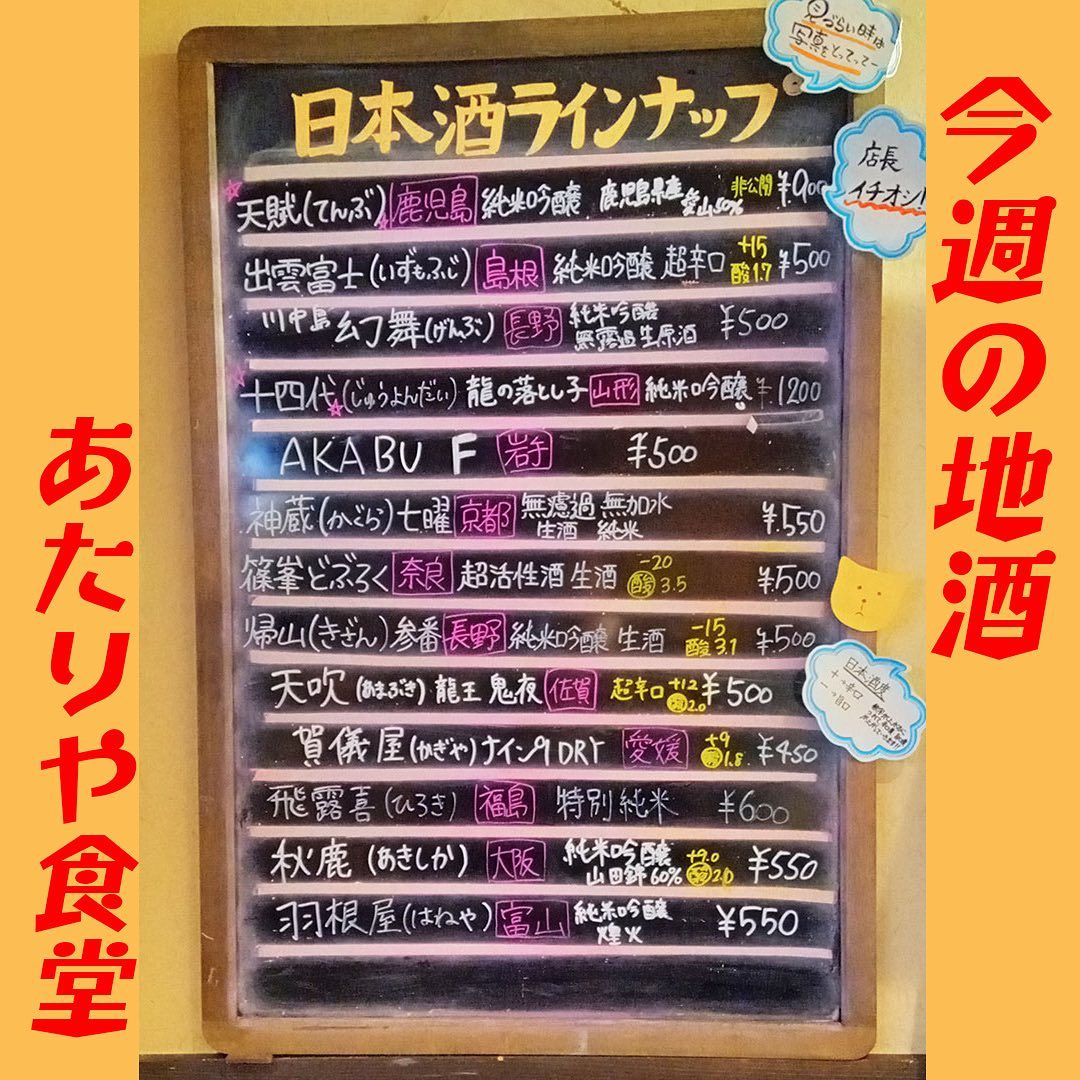 今週の地酒
あたりや食堂
見づらい時は
写真をとってってー
店長
イチオシ!
日本酒ラインナップ
天賦(てんぶ) 鹿児島 純米吟醸 鹿児島県産 愛山50% 非公開 ¥900
出雲富士(いずもふじ) 島根 純米吟醸 超辛口 +15 酸1.7 ¥500
川中島 幻舞(げんぶ) 長野 純米吟醸 無露過生原酒 ¥500
十四代(じゅうよんだい) 龍の落とし子 山形 純米吟醸 ¥1200
AKABU F 岩手 ¥500
神蔵(かぐら)七曜 京都 無濾過 無加水 生酒 純米 ¥550
篠峯どぶろく 奈良 超活性酒 生酒 -20 酸3.5 ¥500
帰山(きざん)参番 長野 純米吟醸 生酒 -15 酸3.1 ¥500
天吹(あまぶき)龍王 鬼夜 佐賀 超辛口 +12 酸2.0 ¥500
賀儀屋(かぎや)ナイン9DRY 愛媛 +9 酸1.8 ¥450
飛露喜(ひろき) 福島 特別純米 ¥600
秋鹿(あきしか) 大阪 純米吟醸 山田錦60% +9.0 酸2.0 ¥550
羽根屋(はねや) 富山 純米吟醸 煌火 ¥550
日本酒度
+→辛口
-→旨口